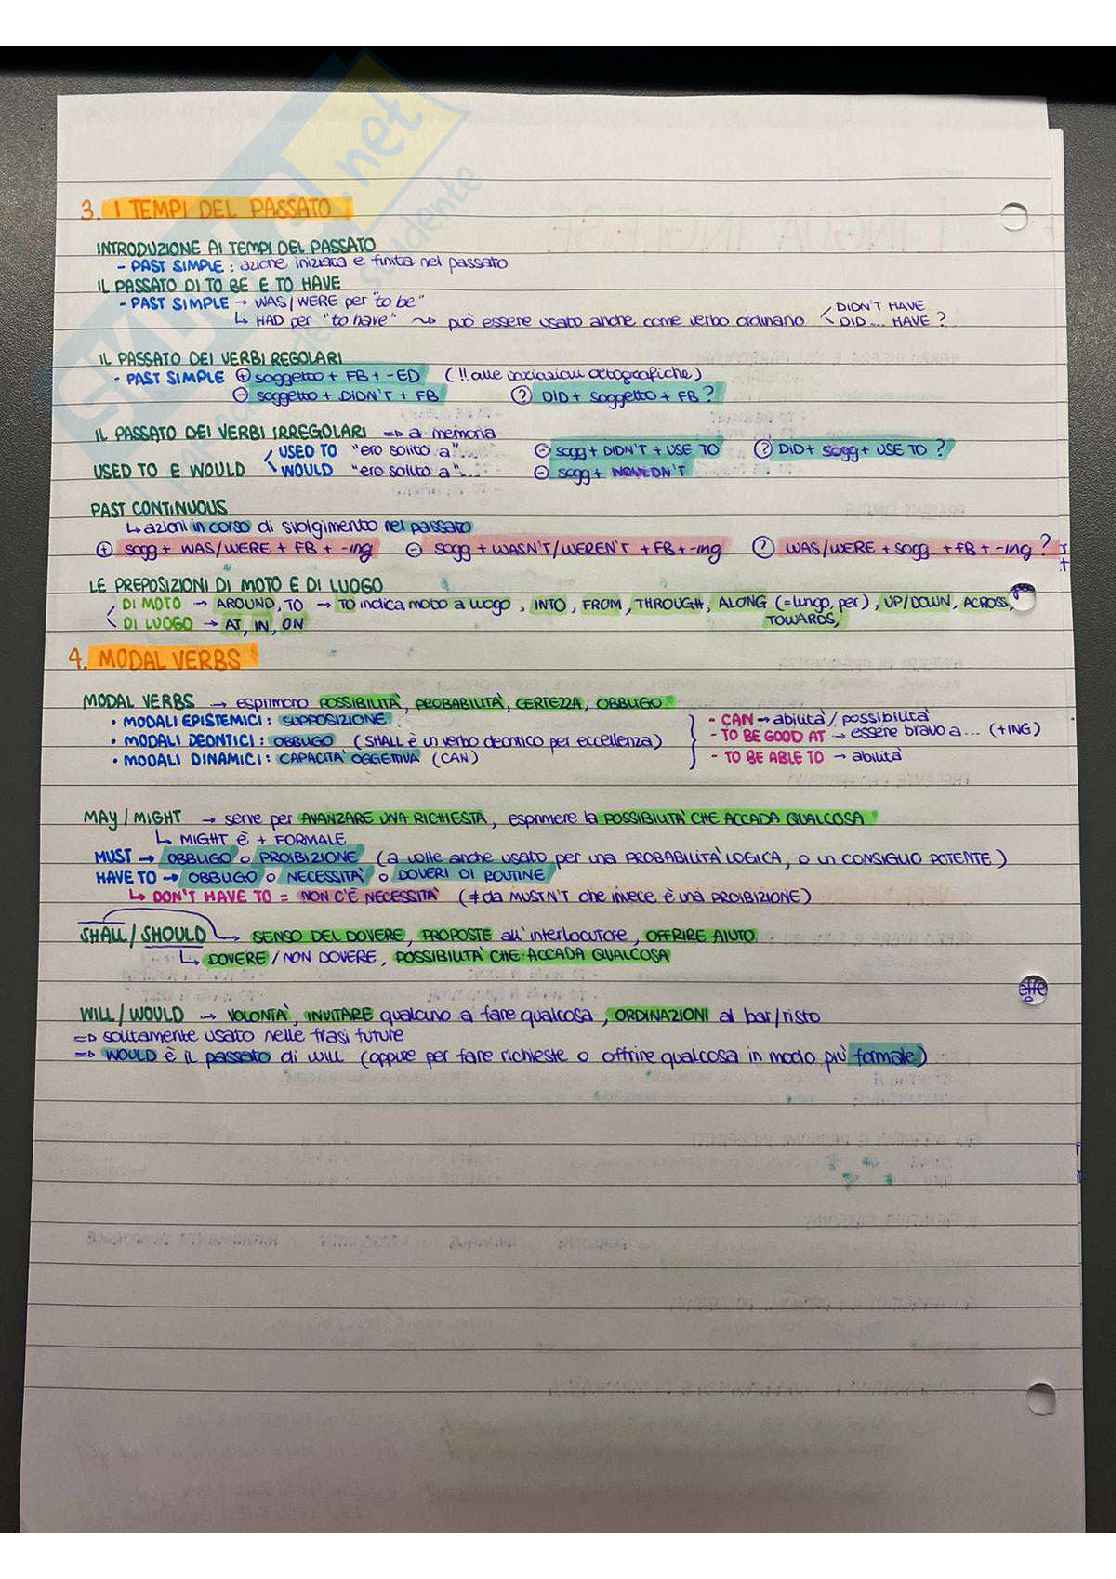 3. I TEMPI DEL PASSATO
INTRODUZIONE AI TEMPI DEL PASSATO
- PAST SIMPLE : azione iniziata e finita nel passato
IL PASSATO DI TO BE E TO HAVE
- PAST SIMPLE → WAS/WERE per "to be"
↳ HAD per "to have" ⇝ può essere usato anche come verbo ordinario
DIDN'T HAVE
DID... HAVE ?
IL PASSATO DEI VERBI REGOLARI
- PAST SIMPLE ⊕ soggetto + FB + -ED (!! alle variazioni ortografiche)
⊖ soggetto + DIDN'T + FB ? DID + soggetto + FB ?
IL PASSATO DEI VERBI IRREGOLARI → a memoria
USED TO E WOULD
USED TO "ero solito a"... ⊖ sogg + DIDN'T + USE TO ? DID + sogg + USE TO ?
WOULD "ero solito a"... ⊖ sogg + WOULDN'T
PAST CONTINUOUS
↳ azioni in corso di svolgimento nel passato
⊕ sogg + WAS/WERE + FB + -ing ⊖ sogg + WASN'T/WEREN'T + FB + -ing ? WAS/WERE + sogg + FB + -ing ?
LE PREPOSIZIONI DI MOTO E DI LUOGO
DI MOTO → AROUND, TO → TO indica moto a luogo , INTO , FROM , THROUGH , ALONG (= lungo, per) , UP/DOWN, ACROSS,
TOWARDS,
DI LUOGO → AT, IN, ON
4. MODAL VERBS
MODAL VERBS → esprimono POSSIBILITÀ, PROBABILITÀ, CERTEZZA, OBBLIGO
• MODALI EPISTEMICI : SUPPOSIZIONE
• MODALI DEONTICI : OBBLIGO (SHALL è un verbo deontico per eccellenza)
• MODALI DINAMICI : CAPACITÀ OGGETTIVA (CAN)
- CAN → abilità / possibilità
- TO BE GOOD AT → essere bravo a ... (+ING)
- TO BE ABLE TO → abilità
MAY / MIGHT → serve per AVANZARE UNA RICHIESTA, esprimere la POSSIBILITÀ CHE ACCADA QUALCOSA
↳ MIGHT È + FORMALE
MUST → OBBLIGO o PROIBIZIONE (a volte anche usato per una PROBABILITÀ LOGICA, o un CONSIGLIO POTENTE)
HAVE TO → OBBLIGO o NECESSITÀ o DOVERI DI ROUTINE
↳ DON'T HAVE TO = NON C'È NECESSITÀ (≠ da MUSTN'T che invece è una PROIBIZIONE)
SHALL / SHOULD → SENSO DEL DOVERE, PROPOSTE all'interlocutore, OFFRIRE AIUTO
↳ DOVERE / NON DOVERE, POSSIBILITÀ CHE ACCADA QUALCOSA
WILL / WOULD → VOLONTÀ, INVITARE qualcuno a fare qualcosa, ORDINAZIONI al bar/risto
⇒ solitamente usato nelle frasi future
→ WOULD è il passato di WILL (oppure per fare richieste o offrire qualcosa in modo più formale)